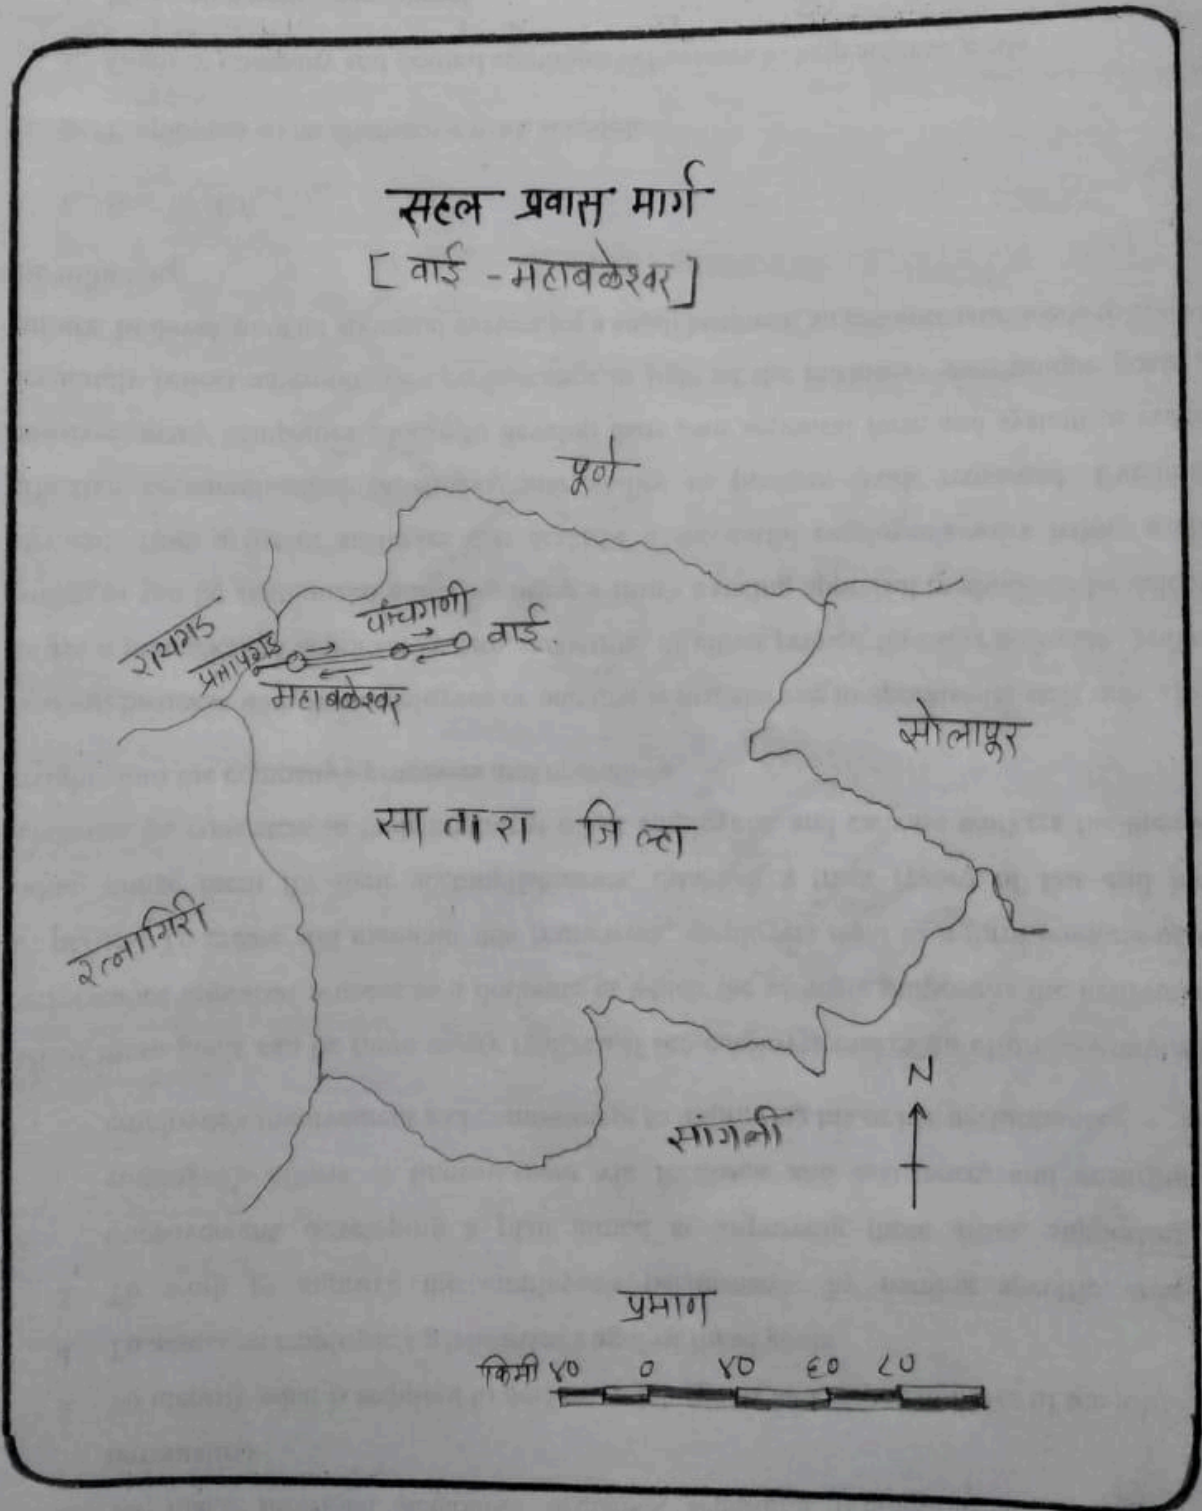 सहल प्रवास मार्ग
[ वाई - महाबळेश्वर ]
पूणे
रायगड
प्रतापगड
पांचगणी
वाई
महाबळेश्वर
सोलापूर
सातारा जिल्हा
रत्नागिरी
N
सांगली
प्रमाण
किमी ४० ० ४० ६० ८०